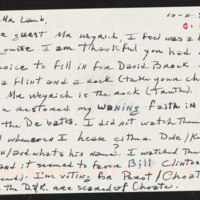 Mr Lamb,
10-11-
guest Mr Weyrich, I feel was a b
ouise I am thankful you had
oice to fill in for David Brock.
a Flint and a rock (take your ch
Mr Weyrich is the rock (truth).
restored my waning faith in
the Debates. I did not watch them
whenever I hear either Dole/Ke
n/and what's his name? I watched them
and it seemed to favor Bill Clinton
. I'm voting for Perot/Choat
the D&R are scared of Choate.